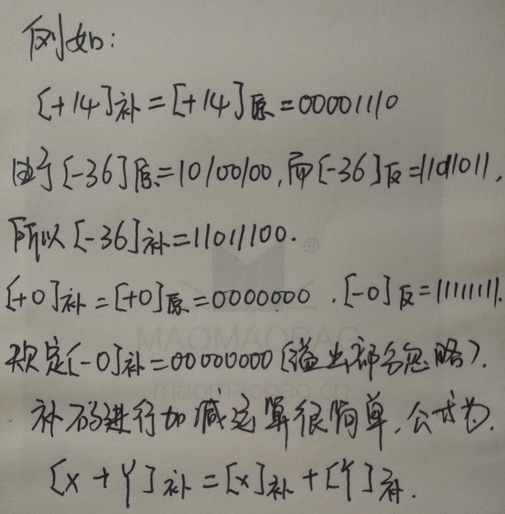 例如:
[+14]补=[+14]原=00001110
由于[-36]原=10100100,而[-36]反=11011011,
所以[-36]补=11011100.
[+0]补=[+0]原=0000000.[-0]反=11111111.
规定[-0]补=00000000(溢出部分忽略).
补码进行加减运算很简单,公式为.
[X+Y]补=[X]补+[Y]补.
MAOMAOBAO
maomaobao.cn